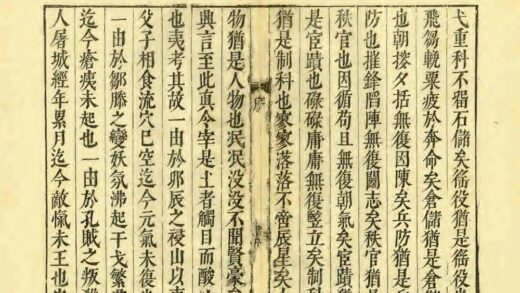 弋重科不啻石儲矣徭役猶是徭役
飛芻輓粟疲於奔命矣倉儲猶是倉
也朝摋夕括無復囷陳矣兵防猶是
防也摧鋒蹈陣無復鬭志矣秩官猶
秩官也因循苟且無復朝氣矣宦蹟
是宦蹟也碌碌庸庸無復豎立矣制
猶是制科也寥寥落落不啻辰星矣
序
物猶是人物也泯泯没没不聞賢豪
興言至此真令宰是土者觸目而酸
也夷考其故一由於丣辰之祲山以
父子相食流穴巳空迄今元氣未復
一由於鄒滕之變妖氛沸起干戈繁
迄今瘡痍未起也一由於孔賊之叛
人屠城經年累月迄今敵愾未王也